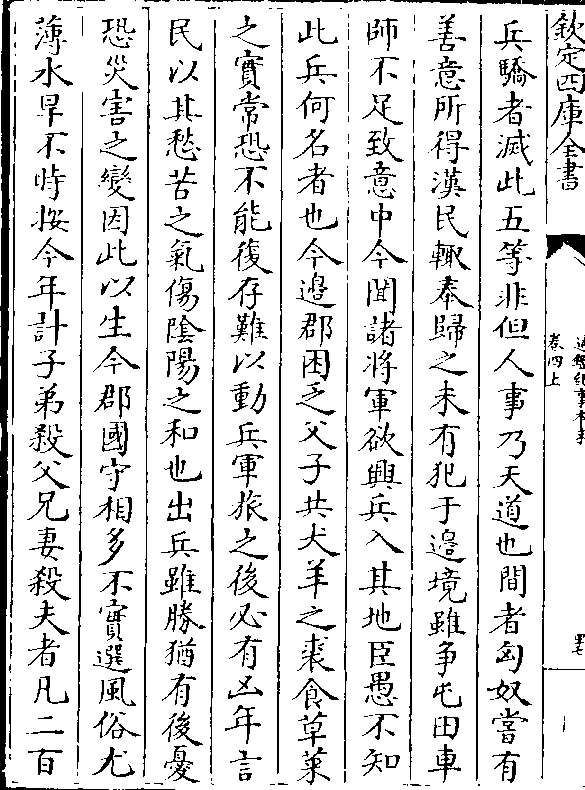 欽定四庫全書
卷四上
兵驕者滅此五等非但人事乃天道也間者匈奴嘗有
善意所得漢民輒奉歸之未有犯于邉境雖争屯田車
師不足致意中今聞諸將軍欲興兵入其地臣愚不知
此兵何名者也今邉郡困乏父子共犬羊之裘食草萊
之實常恐不能復存難以動兵軍旅之後必有凶年言
民以其愁苦之氣傷隂陽之和也出兵雖勝猶有後憂
恐災害之變因此以生今郡國守相多不實選風俗尤
薄水旱不時按今年計子弟殺父兄妻殺夫者凡二百